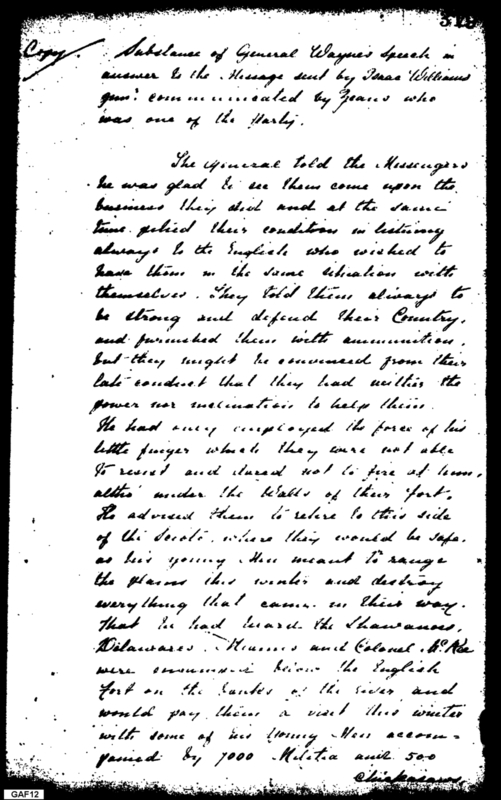 Copy.
Substance of General Wayne's Speech in
answer to the Message sent by Isaac Williams
Junr. communicated by Zeans who
was one of the Party.
The General told the Messengers
he was glad to see them come upon the
business they did and at the same
time pitied their condition in listening
always to the English who wished to
have them in the same situation with
themselves. They told them always to
be strong and defend their Country,
and furnished them with ammunition,
but they might be convinced from their
late conduct that they had neither the
power nor inclination to help them.
He had only employed the force of his
little finger which they were not able
to resist and dared not to fire at him,
altho' under the Walls of their fort.
He advised them to retire to this side
of the Scioto, where they would be safe,
as his young Men meant to range
the plains this winter and destroy
everything that came in their way.
That he had heard the Shawanoes,
Delawares, Miamis and Colonel McKee
were below the English
fort on the banks of the river and
would pay them a visit this winter
with some of his young Men accom-
panied by 7000 Militia and 500
Chickasaws.
GAF12